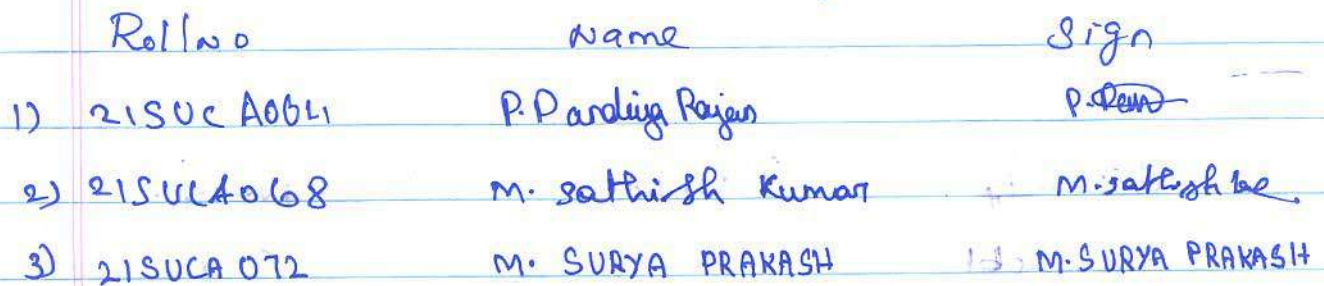 Roll No Name Sign
1) 21SUCA0641 P. Pandiya Rajan P.
2) 21SUCA068 M. Sathish Kumar M. Sathish
3) 21SUCA072 M. SURYA PRAKASH M. SURYA PRAKASH